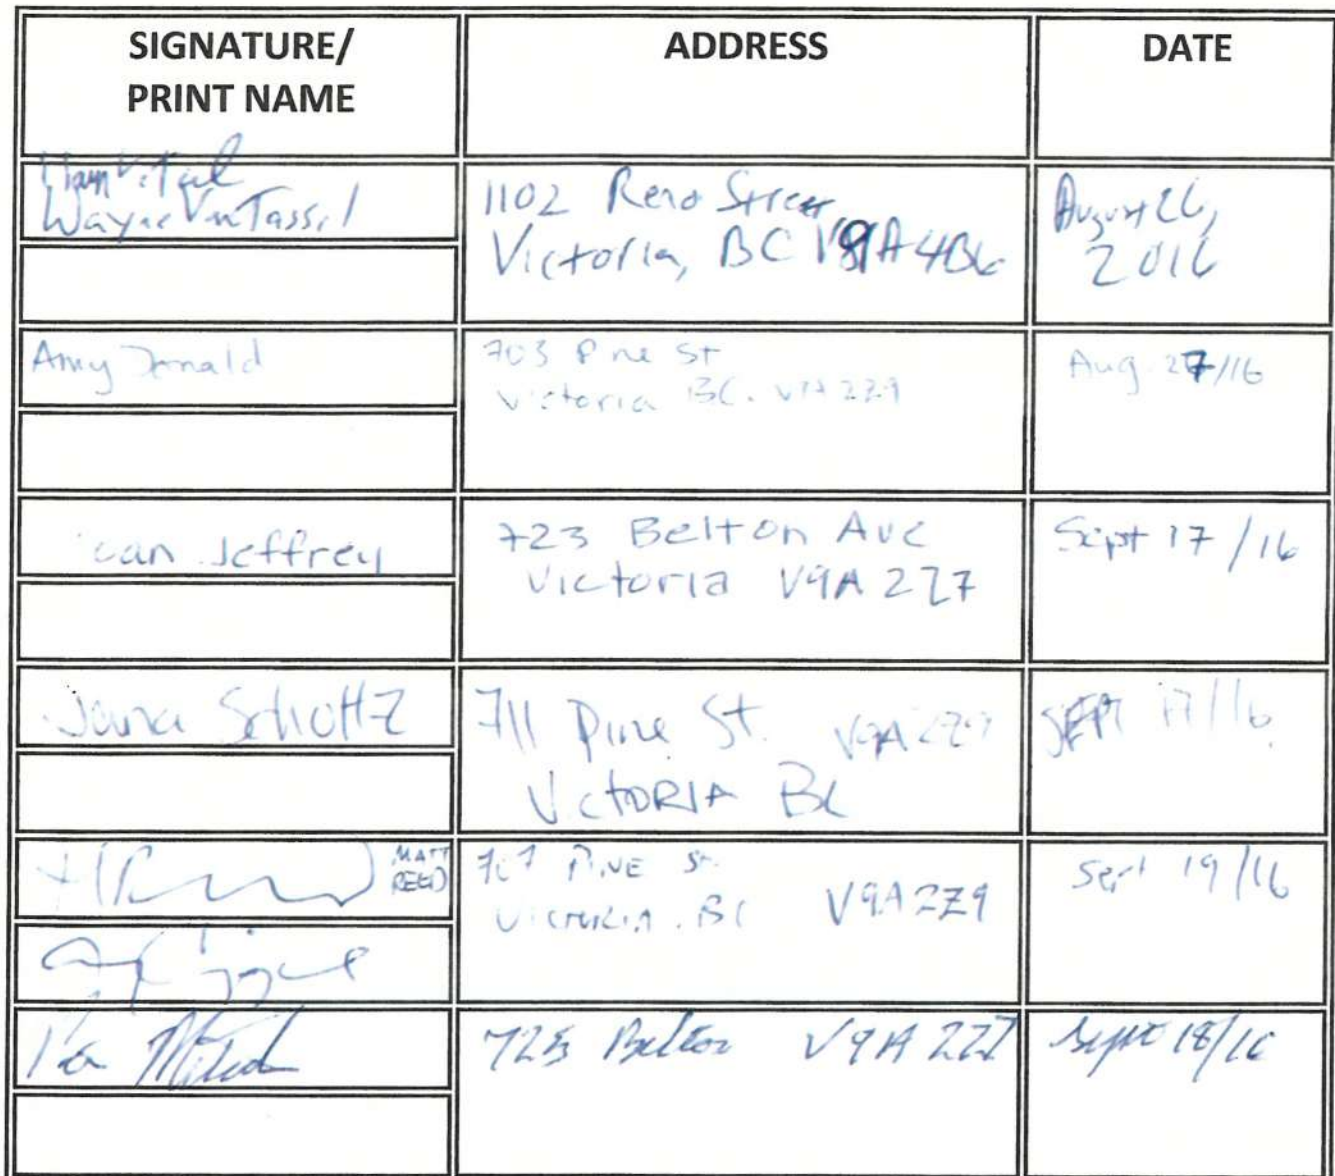 SIGNATURE/
PRINT NAME
ADDRESS
DATE
Wayne VanTassel
1102 Reno Street
Victoria, BC V9A 4B6
August 26,
2016
Amy Donald
703 Pine St
Victoria BC. V9A 2Z9
Aug. 27/16
Jeffrey
723 Belton Ave
Victoria V9A 2Z7
Sept 17/16
Jana Schultz
711 Pine St. V9A 2Z9
Victoria BC
SEPT 17/16
MATT
REED
707 PINE St.
VICTORIA. BC V9A2Z9
Sept 19/16
725 Belton V9A 2Z7
Sept 18/16